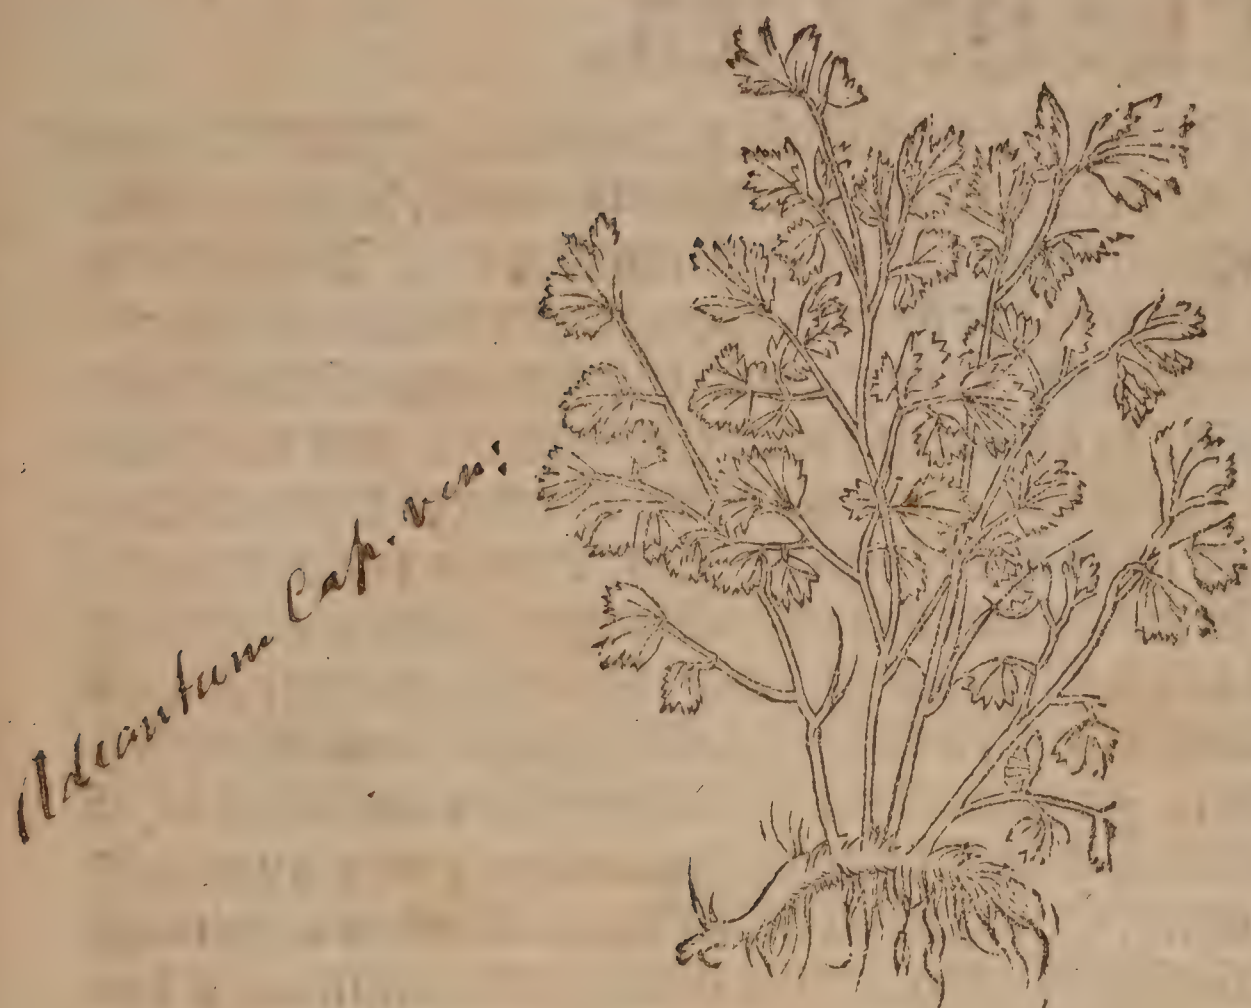 Adiantum Cap. ven: